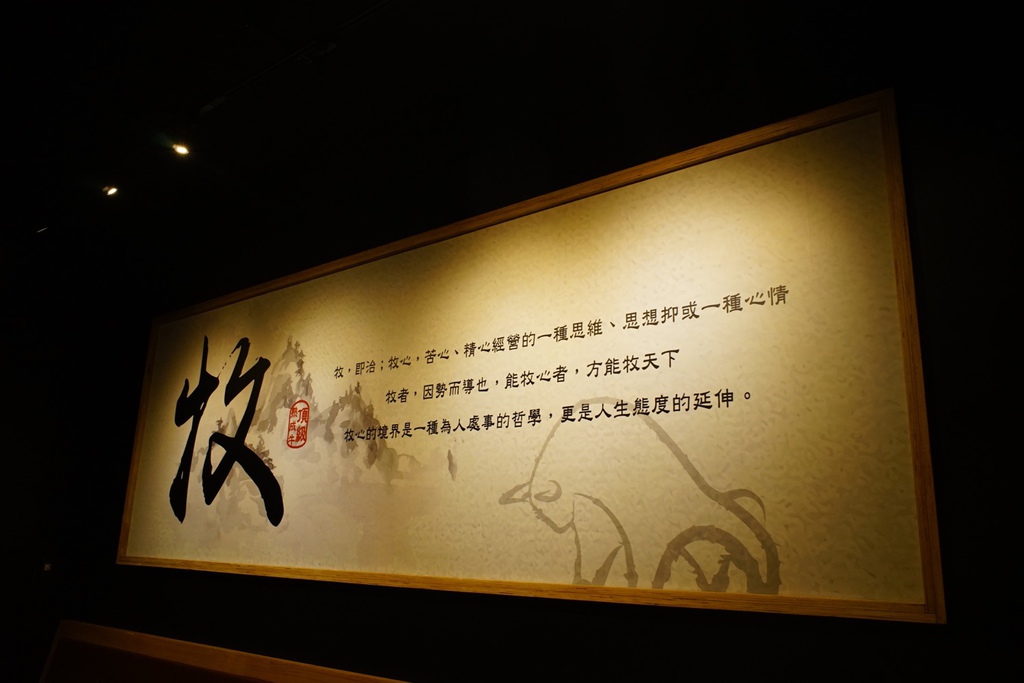 牧
頂級
熟成牛
牧，即治；牧心，苦心、精心經營的一種思維、思想抑或一種心情
牧者，因勢而導也，能牧心者，方能牧天下
牧心的境界是一種為人處事的哲學，更是人生態度的延伸。